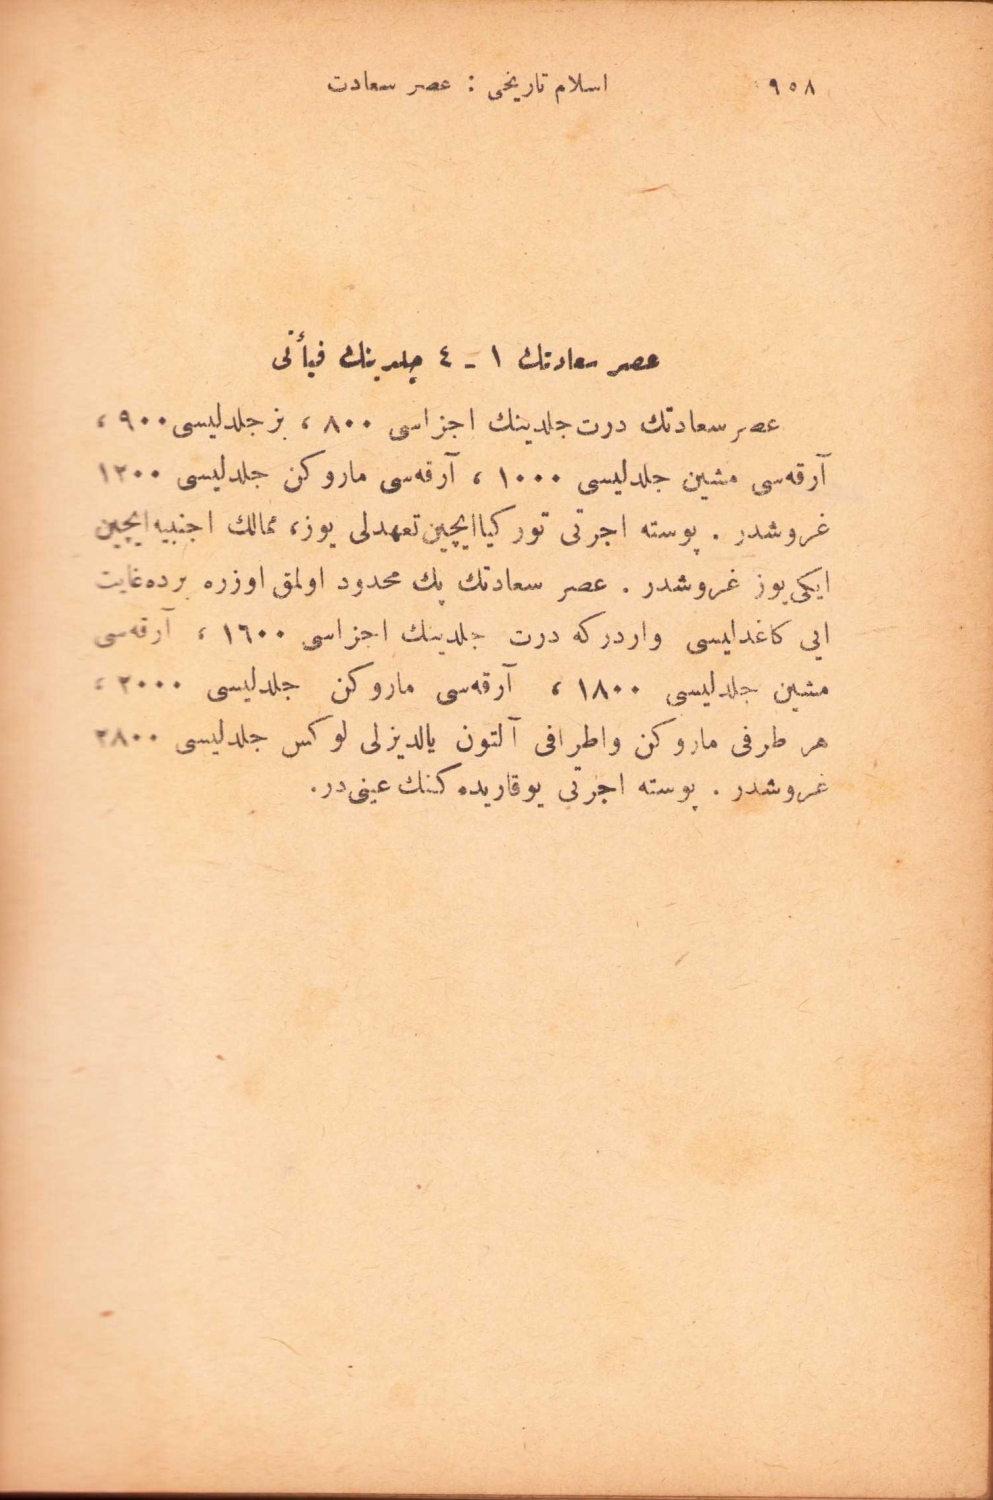 ٩٥٨ اسلام تاریخی : عصر سعادت
عصر سعادتك ١ ـ ٤ جلدینك فیأتی
عصر سعادتك درت جلدینك اجزاسی ٨٠٠ ، بز جلدلیسی ٩٠٠ ،
آرقه‌سی مشین جلدلیسی ١٠٠٠ ، آرقه‌سی ماروکن جلدلیسی ١٢٠٠
غروشدر . پوسته اجرتی تورکیا ایچین تعهدلی یوز ، ممالك اجنبیه ایچین
ایکی یوز غروشدر . عصر سعادتك پك محدود اولمق اوزره برده غایت
ایی کاغدلیسی واردرکه درت جلدینك اجزاسی ١٦٠٠ ، آرقه‌سی
مشین جلدلیسی ١٨٠٠ ، آرقه‌سی ماروکن جلدلیسی ٢٠٠٠ ،
هر طرفی ماروکن واطرافی آلتون یالدیزلی لوکس جلدلیسی ٢٨٠٠
غروشدر . پوسته اجرتی یوقاریده‌کنك عینی‌در .